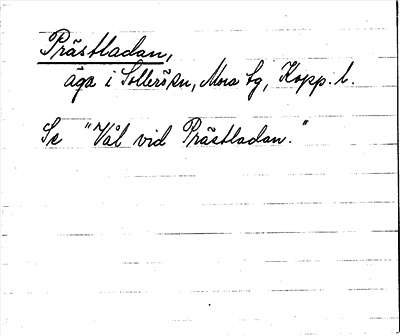 Prästladan,
äga i Sollerö sn, Mora tg, Kopp. l.
Se "Vål vid Prästladan."